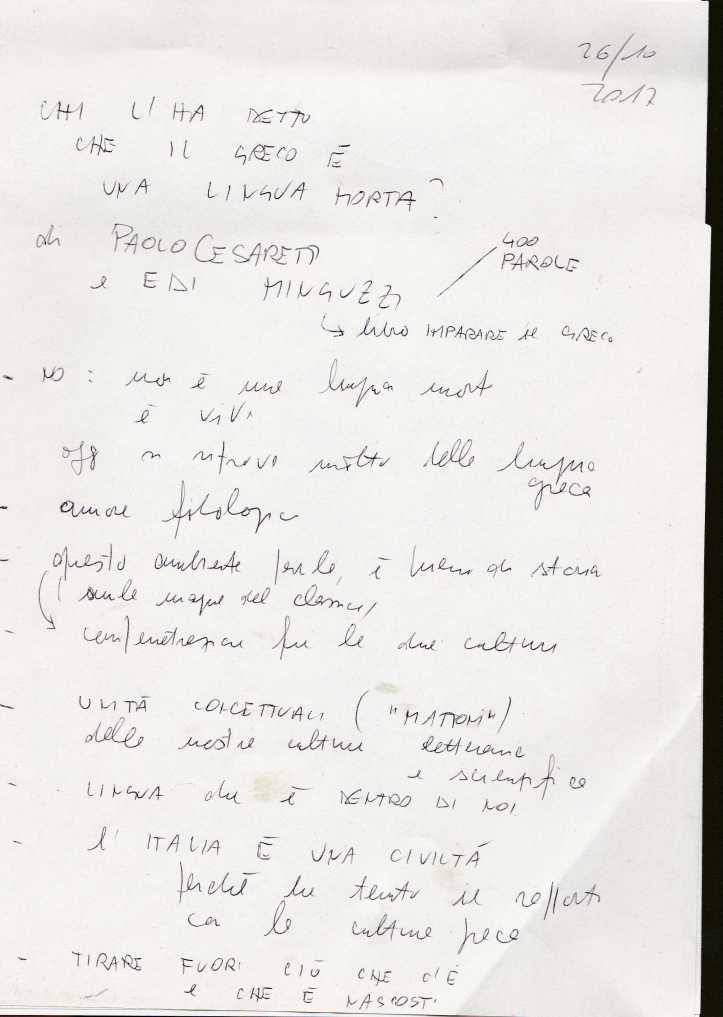 26/10
2017
CHI L'HA DETTO
CHE IL GRECO È
UNA LINGUA MORTA?
di PAOLO CESARETTI
e EDI MINGUZZI
400
PAROLE
↳ libro IMPARARE il GRECO
- NO: non è una lingua mort
è VIVA
oggi si ritrova molto della lingua
greca
- amore filologia
- questo ambiente parla, è pieno di storia
sulle del classici
- compenetrazione fra le due culture
- UNITÀ CONCETTUALI ("MATTONI")
delle nostre culture letteraria
e scientifica
- LINGUA che è DENTRO DI NOI
- l'ITALIA È UNA CIVILTÀ
perché ha tenuto il rapporto
con la cultura greca
- TIRARE FUORI CIÒ CHE C'È
e CHE È NASCOSTO